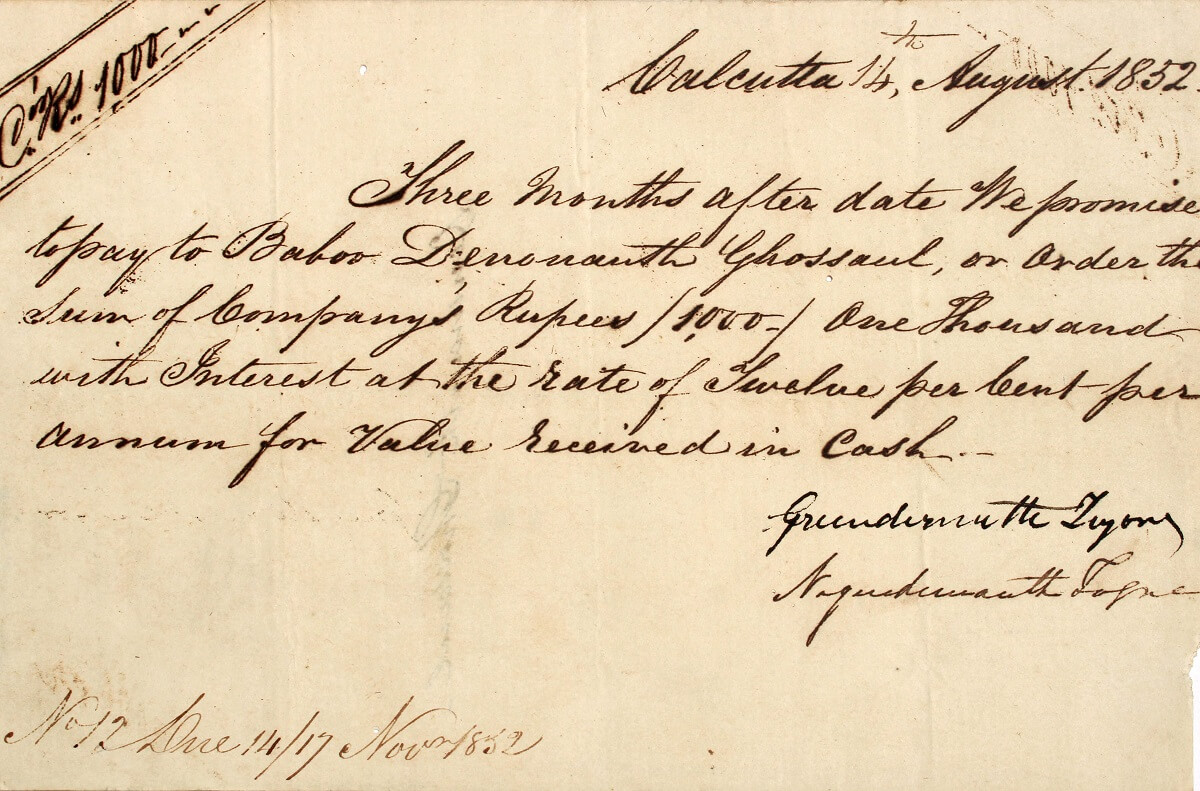 Co's Rs 1000 --
Calcutta 14th, August. 1852.
Three Months after date We promise
to pay to Baboo Denonauth Ghossaul, or Order the
Sum of Company's Rupees /1000-/ One Thousand
with Interest at the rate of Twelve per Cent per
annum for Value received in Cash.-
Greendernauth
Nogendernauth
No 12 Due 14/17 Novr 1852